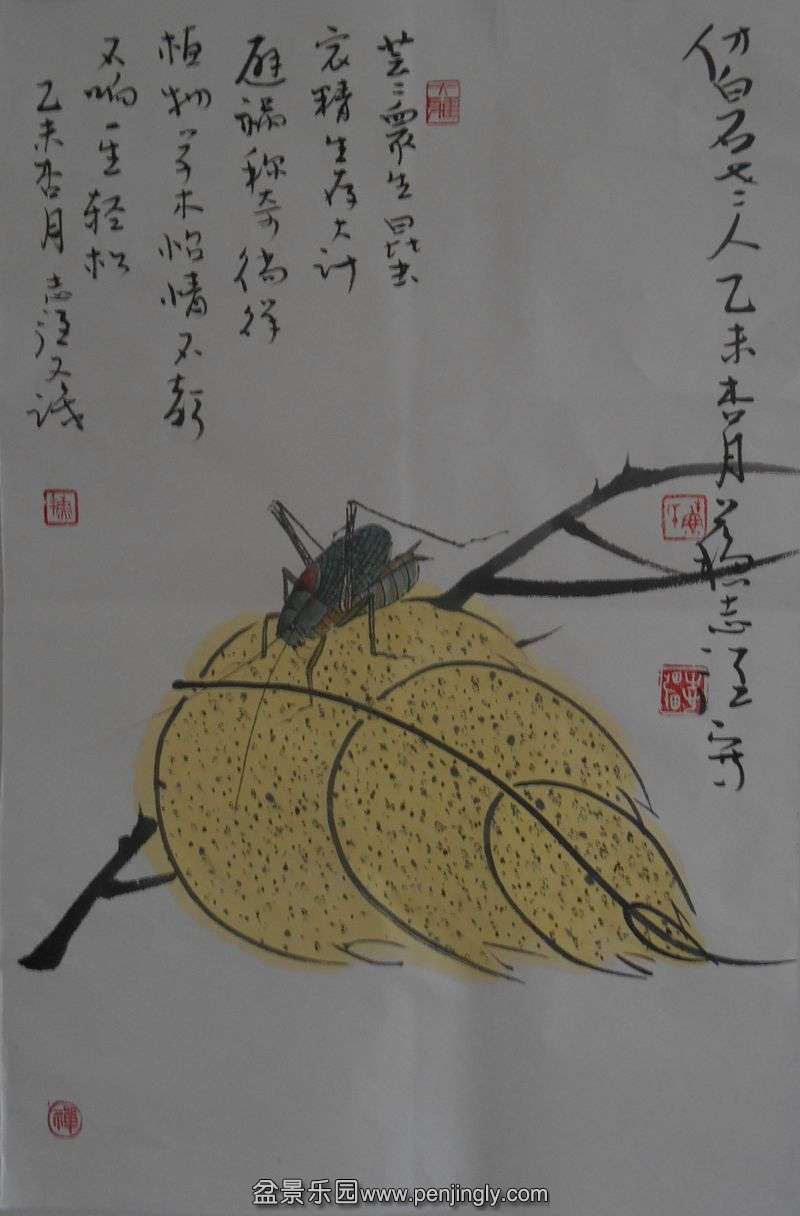 仿白石老人乙未杏月 志 写
芸〻众生昆虫
精生存大计
避祸称奇徜徉
植物草木怡情不
不响一生轻松
乙未杏月 志 又识
禅
盆景乐园www.penjingly.com